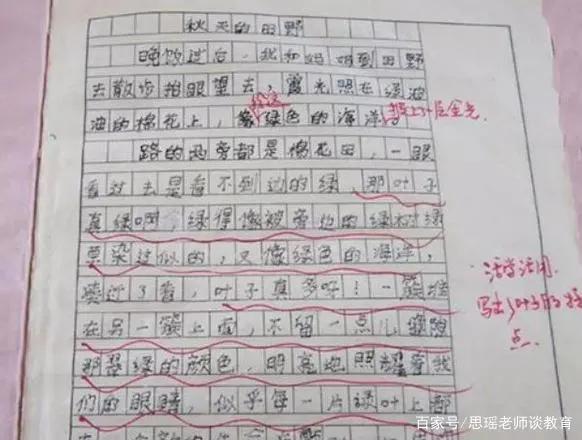 秋天的田野
晚饭过后,我和妈妈到田野
去散步抬眼望去,霞光照在绿油
给这
油的棉花上,像绿色的海洋。披上了一层金光。
路的两旁都是棉花田,一眼
看过去是看不到边的绿,那叶子
真绿啊,绿得像被旁边的绿树绿
草染过似的,又像绿色的海洋,
凑过了看,叶子真多呀!一簇堆
在另一簇上面,不留一点儿缝隙
那翠绿的颜色,明亮地照耀着我
们的眼睛,似乎每一片绿叶上都
活学活用,
写出了叶子的特
点。
百家号/思瑶老师谈教育